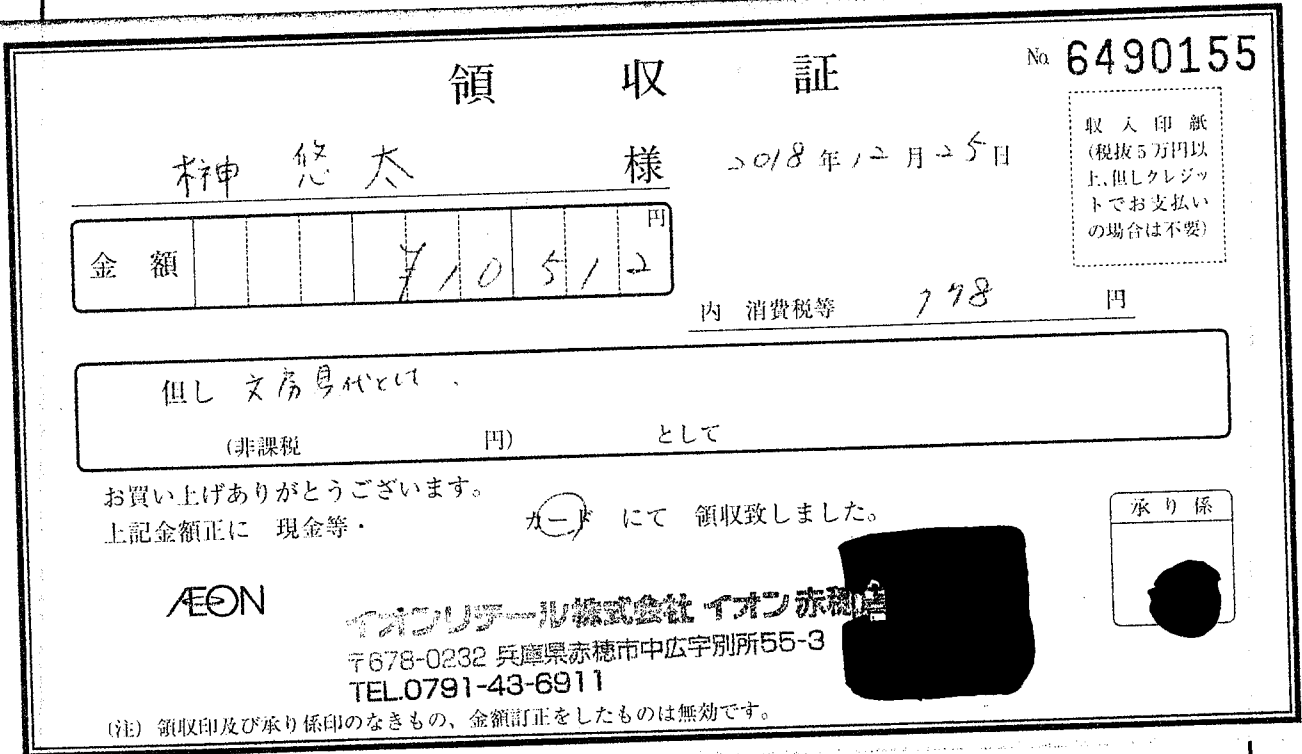 領収証
No. 6490155
榊 悠太 様
2018年12月25日
収入印紙
(税抜5万円以
上、但しクレジッ
トでお支払い
の場合は不要)
金額 ¥10512円
内 消費税等 778 円
但し 文房具代として
(非課税 円) として
お買い上げありがとうございます。
上記金額正に 現金等・ カード にて 領収致しました。
承り係
ÆON
イオンリテール株式会社 イオン赤穂店
〒678-0232 兵庫県赤穂市中広字別所55-3
TEL.0791-43-6911
(注) 領収印及び承り係印のなきもの、金額訂正をしたものは無効です。